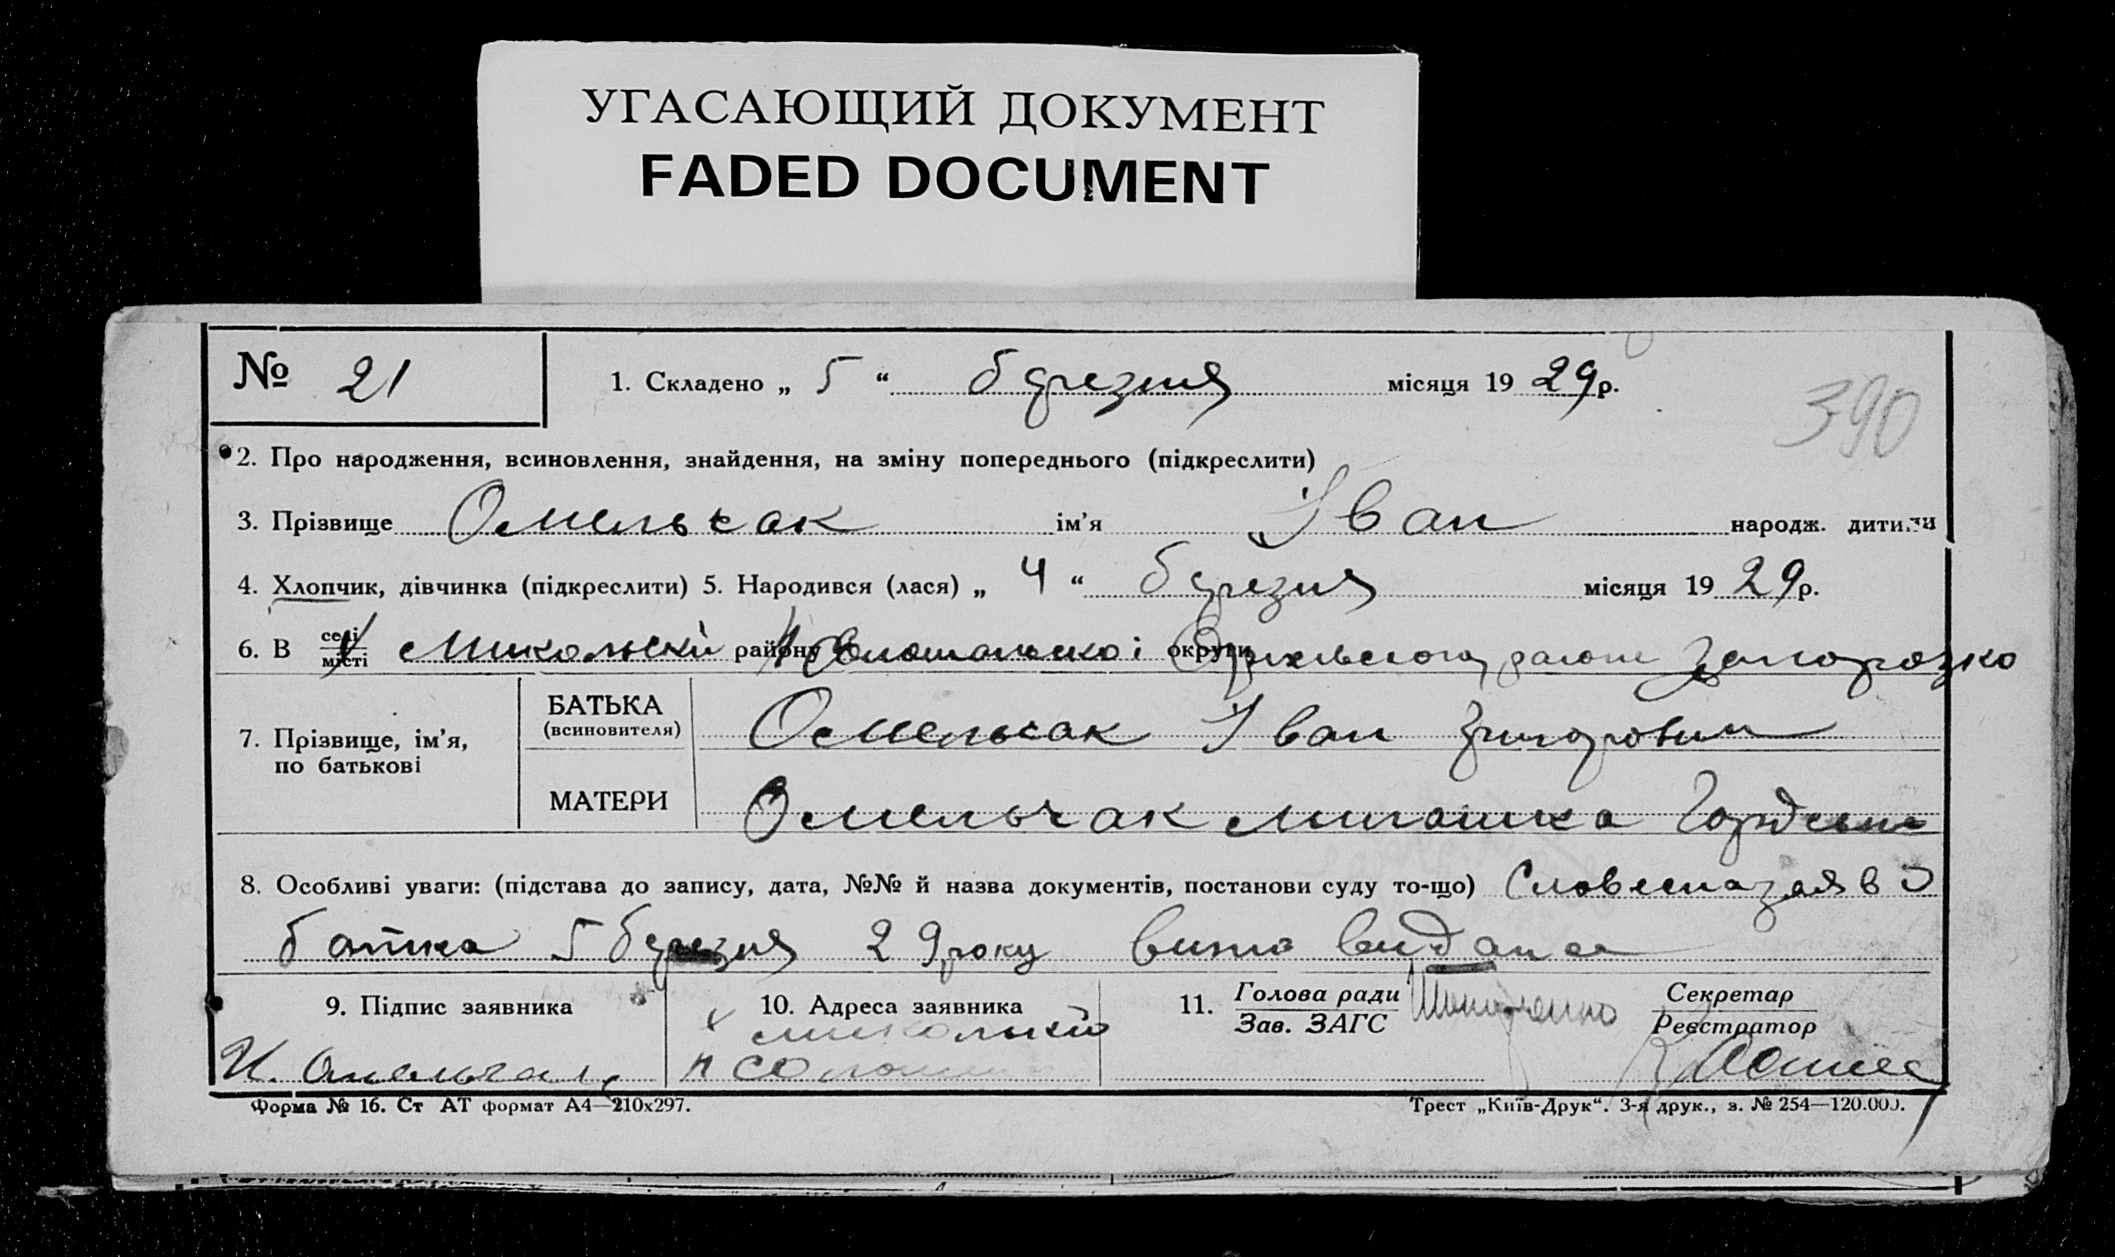 УГАСАЮЩИЙ ДОКУМЕНТ
FADED DOCUMENT
№ 21
1. Складено „ 5 “ березня місяця 19 29 р.
390
2. Про народження, всиновлення, знайдення, на зміну попереднього (підкреслити)
3. Прізвище Омельчак ім’я Іван народж. дитини
4. Хлопчик, дівчинка (підкреслити) 5. Народився (лася) „ 4 “ березня місяця 19 29 р.
6. В селі місті х Микольскій району округи
7. Прізвище, ім’я, по батькові
БАТЬКА (всиновителя) Омельчак Іван Григорович
МАТЕРИ Омельчак
8. Особливі уваги: (підстава до запису, дата, №№ й назва документів, постанови суду то-що) Словесна заяв
батька 5 березня 29 року видана
9. Підпис заявника
10. Адреса заявника
11. Голова ради
Зав. ЗАГС
Секретар
Реєстратор
И. Омельчак
х Микольский
Форма № 16. Ст АТ формат А4—210х297.
Трест „Київ-Друк“. 3-я друк., з. № 254—120.000.